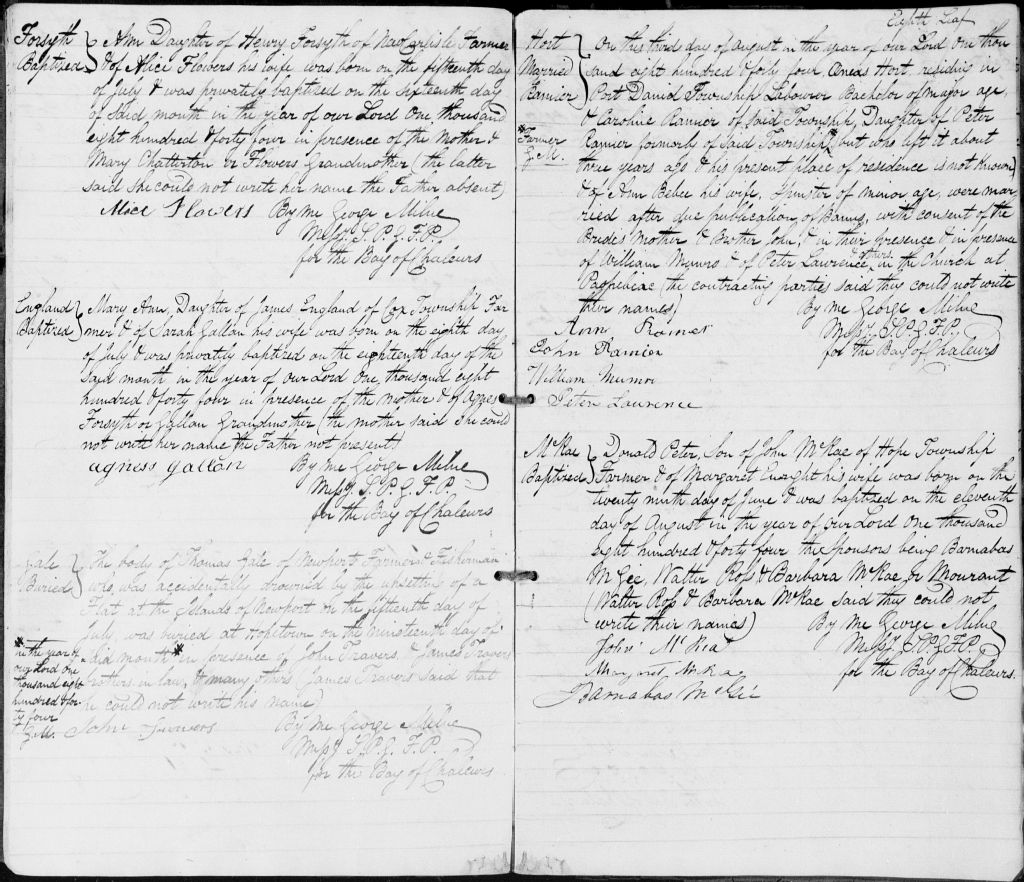 Forsyth
Baptized
Ann Daughter of Henry Forsyth of New Carlisle Farmer
& of Alice Flowers his wife was born on the fifteenth day
of July & was privately baptized on the sixteenth day
of said month in the year of our Lord One thousand
eight hundred & forty four in presence of the Mother &
Mary Chatterton or Flowers Grandmother (the latter
said she could not write her name the Father absent)
Alice Flowers By me George Milne
Missy. S. P. G. F. P.
for the Bay of Chaleurs
England
Baptized
Mary Ann, Daughter of James England of Cox Township Far
mer & of Sarah Gallan his wife was born on the eighth day
of July & was privately baptized on the eighteenth day of the
said month in the year of our Lord One thousand eight
hundred & forty four in presence of the mother & of Agnes
Forsyth or Gallan Grandmother (the mother said she could
not write her name the Father not present)
agness gallan By me George Milne
Missy. S. P. G. F. P.
for the Bay of Chaleurs
Gale
Buried
The body of Thomas Gale of Newport Farmer & Fisherman
who, was accidentally drowned by the upsetting of a
Flat at the Islands of Newport on the fifteenth day of
July, was buried at Hopetown on the nineteenth day of
said month * in presence of John Travers & James Travers
Brothers in law, & many others (James Travers said that
he could not write his name)
* in the year of
our Lord One
thousand eight
hundred & for
ty four
G. M.
John Travers By me George Milne
Missy S. P. G. F. P.
for the Bay of Chaleurs
Eighth Leaf
Hort
Married
Ramier
On this third day of August in the year of our Lord One thou
sand eight hundred & forty four, Aneas Hort, residing in
Port Daniel Township Labourer Bachelor of major age,
& Caroline Ramier of said Township, Daughter of Peter
Ramier formerly of said Township,* but who left it about
three years ago & his present place of residence is not known
* Farmer
G. M.
& of Ann Bebee his wife, Spinster of minor age, were mar
ried after due publication of Banns, with consent of the
Bride's Mother & Brother John, & in their presence & in presence
of William Munro & of Peter Lawrence, & others, in the Church at
Paspebiac (the contracting parties said they could not write
their names) By me George Milne
Missy. S. P. G. F. P.
for the Bay of Chaleurs
Anny Ramer
John Ramier
William Munro
Peter Lawrence
McRae
Baptized
Donald Peter, Son of John McRae of Hope Township
Farmer & of Margaret Enright his wife was born on the
twenty ninth day of June & was baptized on the eleventh
day of August in the year of our Lord One thousand
eight hundred & forty four the sponsors being Barnabas
McGee, Walter Ross & Barbara McRae or Mourant
(Walter Ross & Barbara McRae said they could not
write their names) By me George Milne
Missy S. P. G. F. P.
for the Bay of Chaleurs.
John McRea
Margrat McRae
Barnabas McGie